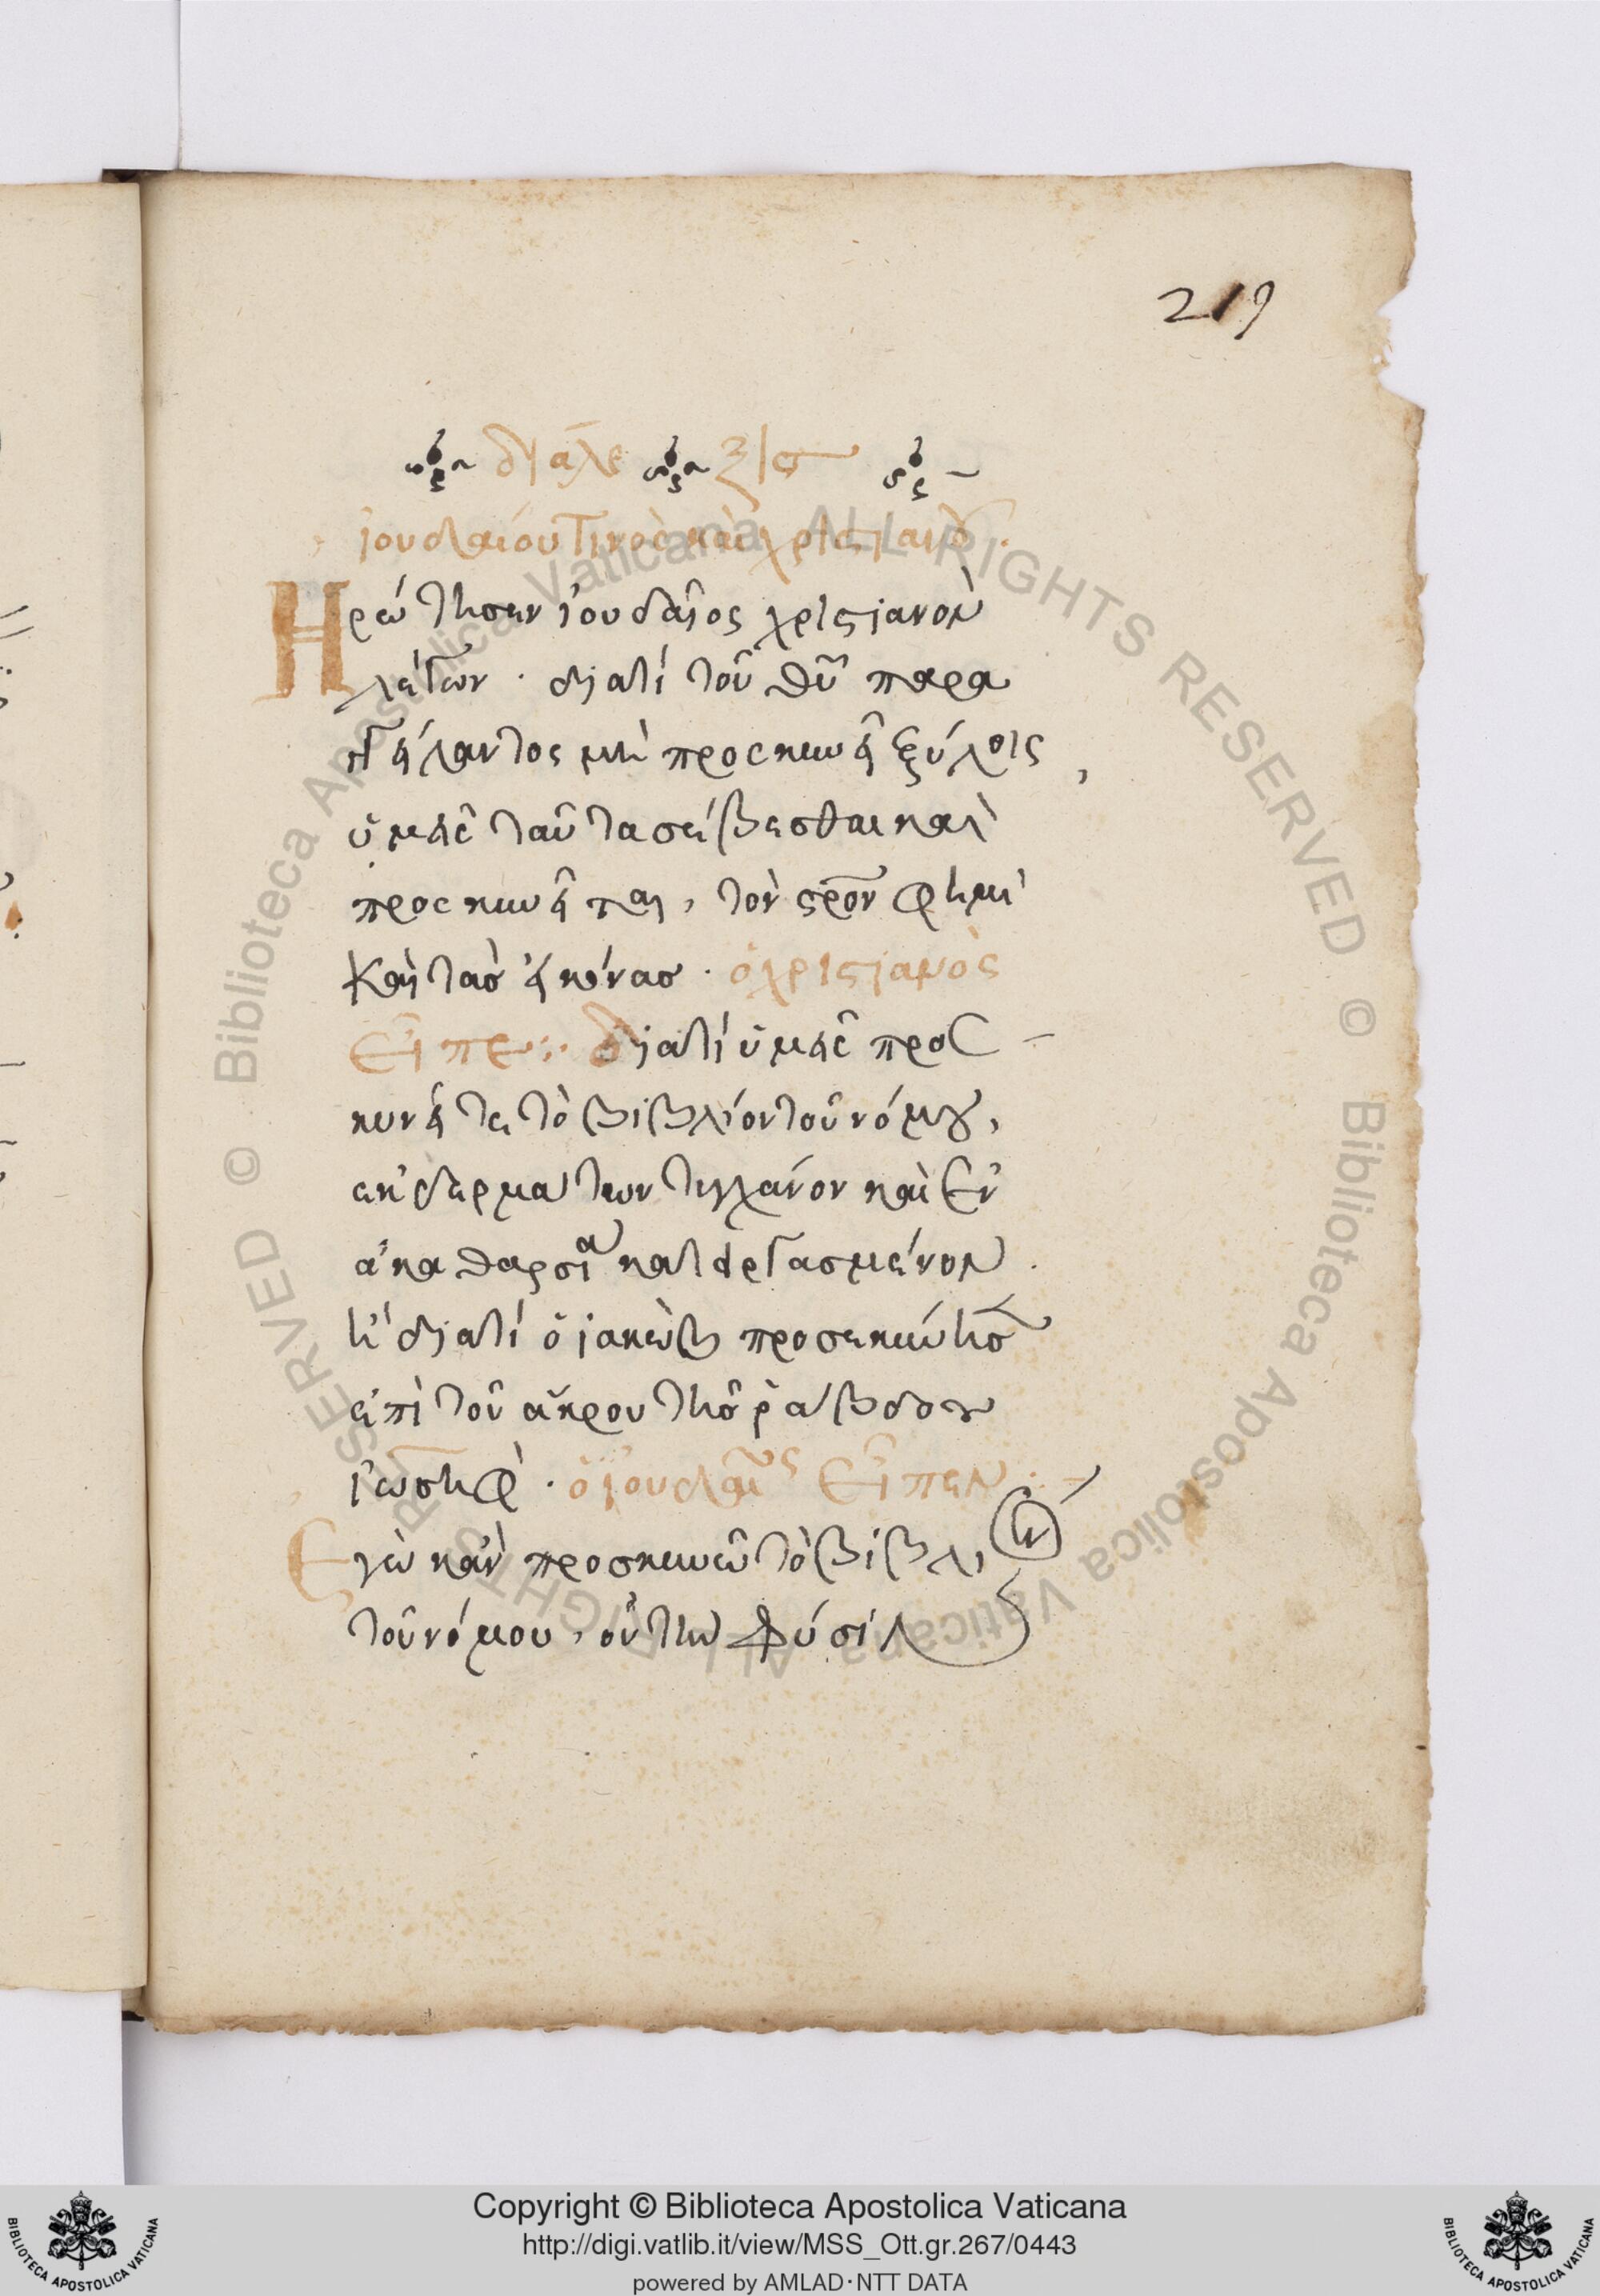 219
διάλεξις
ἰουδαίου τινὸς καὶ χριστιανοῦ.
Ηρώτησεν ἰουδαῖος χριστιανὸν
λέγων. διατί τοῦ θυ παρα
γγείλαντος μὴ προσκυνεῖν ξύλοις,
ὑμεῖς ταῦτα σέβεσθαι καὶ
προσκυνεῖται, τὸν σρον φημὶ
καὶ τὰς εἰκόνας. ὁ χριστιανὸς
εἶπε: διατί ὑμεῖς προσ
κυνεῖτε τὸ βιβλίον τοῦ νόμου,
ἐκ δερμάτων τυγχάνον καὶ ἐν
ἀκαθαρσία κατειργασμένον.
ἢ διατί ὁ ἰακὼβ προσεκύνησεν
ἐπὶ τοῦ ἄκρου τῆς ῥάβδου
ἰωσὴφ. ὁ ἰουδαῖος εἶπεν:
Εγὼ κἂν προσκυνῶ τὸ βιβλίον
τοῦ νόμου, οὐ τὴν φύσιν
© Biblioteca Apostolica Vaticana ALL RIGHTS RESERVED © Biblioteca Apostolica Vaticana ALL RIGHTS RESERVED
Copyright © Biblioteca Apostolica Vaticana
http://digi.vatlib.it/view/MSS_Ott.gr.267/0443
powered by AMLAD·NTT DATA
BIBLIOTECA APOSTOLICA VATICANA
BIBLIOTECA APOSTOLICA VATICANA